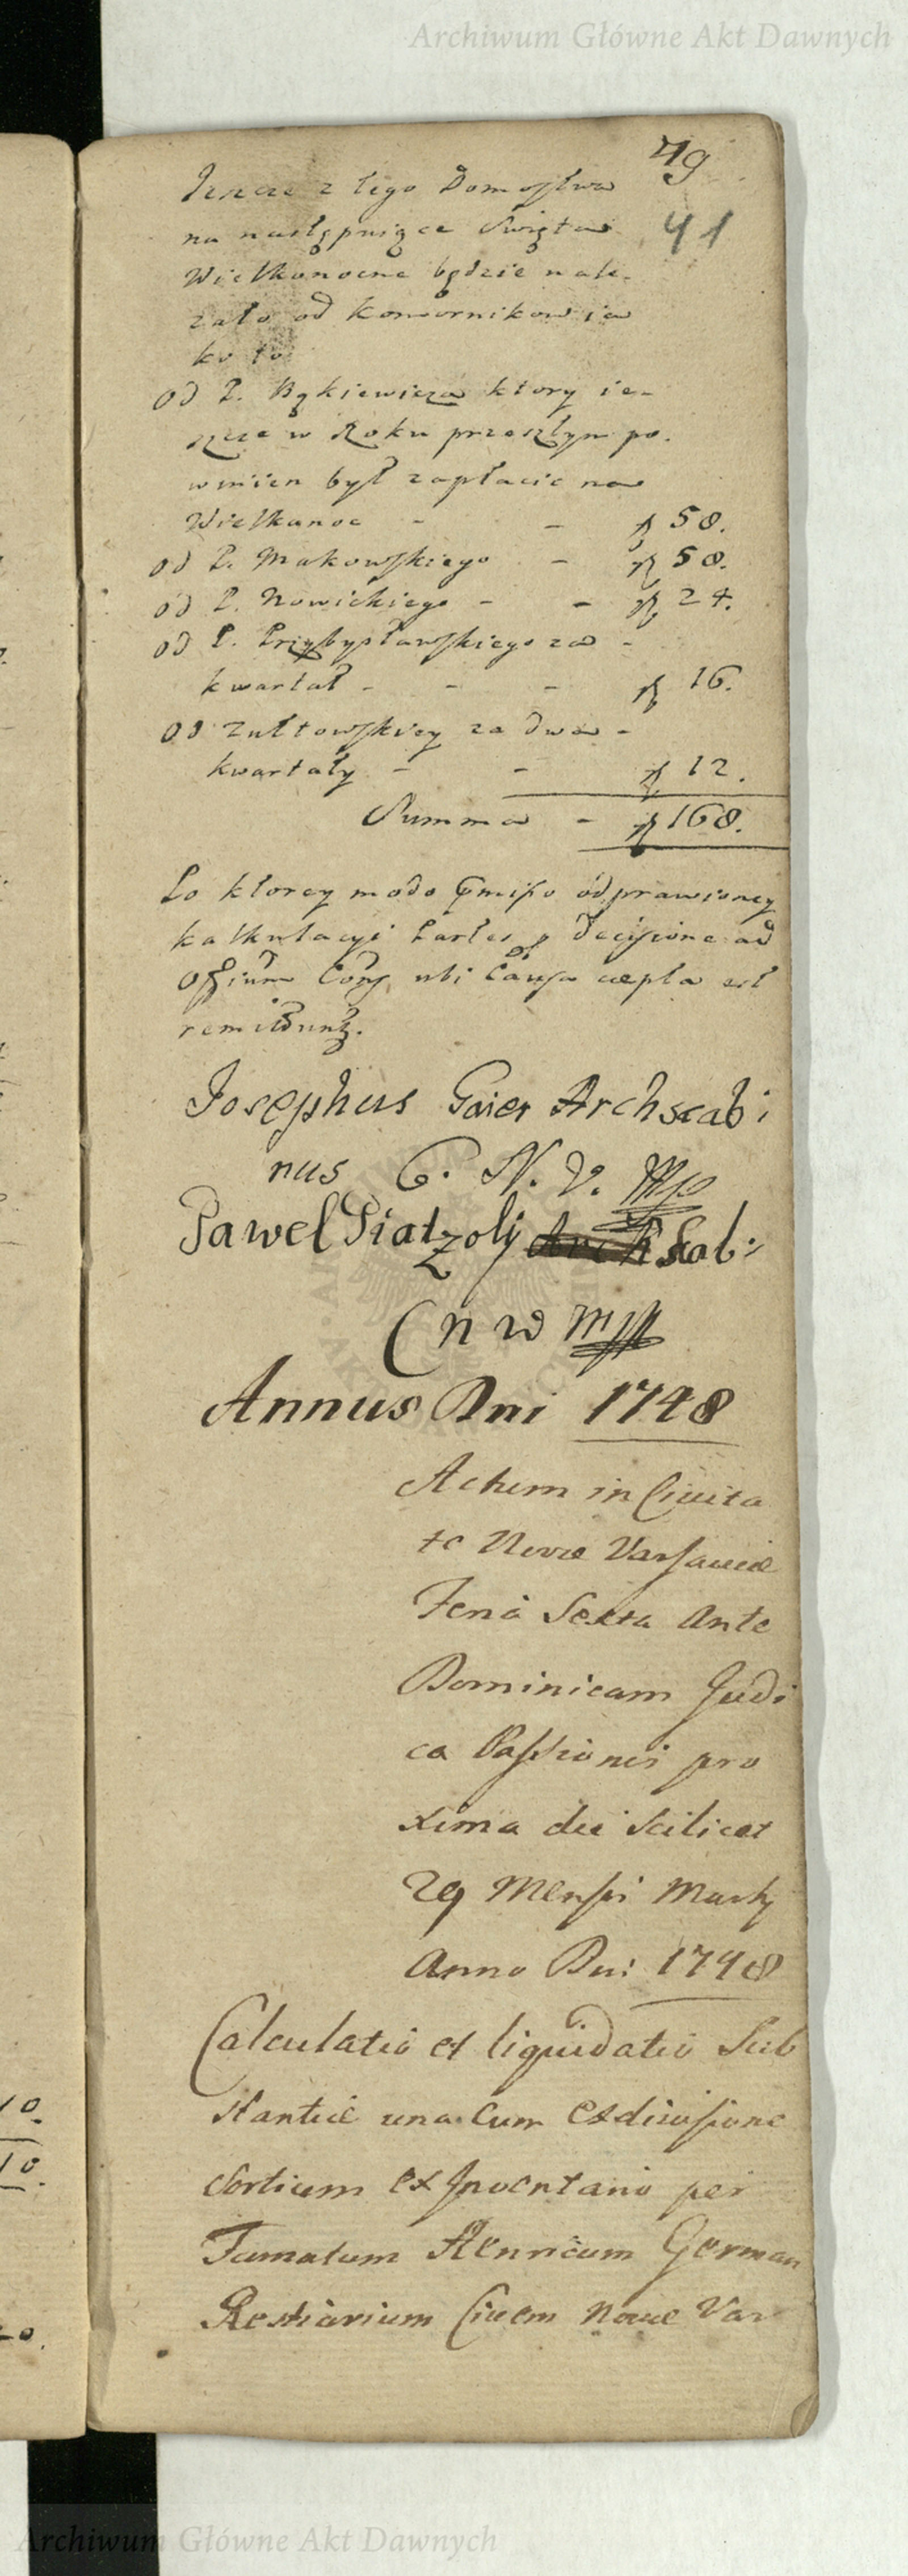 Archiwum Główne Akt Dawnych
49
41
Ieszcze z tego Domostwa
na następuiące Święta
Wielkanocne będzie nale-
zało od komornikow ia
ko to
od P. Bąkiewicza ktory ie-
szcze w Roku przeszłym po-
winien był zapłacic na
Wielkanoc - - f 58.
od P. Makowskiego - f 58.
od P. Nowickiego - - f 24.
od P. Przybysławskiego za -
kwartał - - - f 16.
od Zułtowskiey za dwa -
kwartały - - f 12.
Summa - f 168.
Po ktorey modo praemisso odprawioney
kalkulacyi Partes p decisione ad
Offium Cons ubi Causa caepta est
remittunt.
Josephus Gaier Archscabi
nus C. N. V. mp
Pawel Piatzoly Scab:
C n w mp
Annus Dni 1748
Actum in Ciuita
te Nova Varsauiae
Feria Sexta Ante
Dominicam Judi
ca Passionis pro
xima die scilicet
29 Mensis Martij
Anno Dni 1748
Calculatio et liquidatio Sub
stantiae una cum exdivisione
Sortium ex Inventario per
Famatum Henricum German
Restiarium Ciuem Nouae Var
Archiwum Główne Akt Dawnych